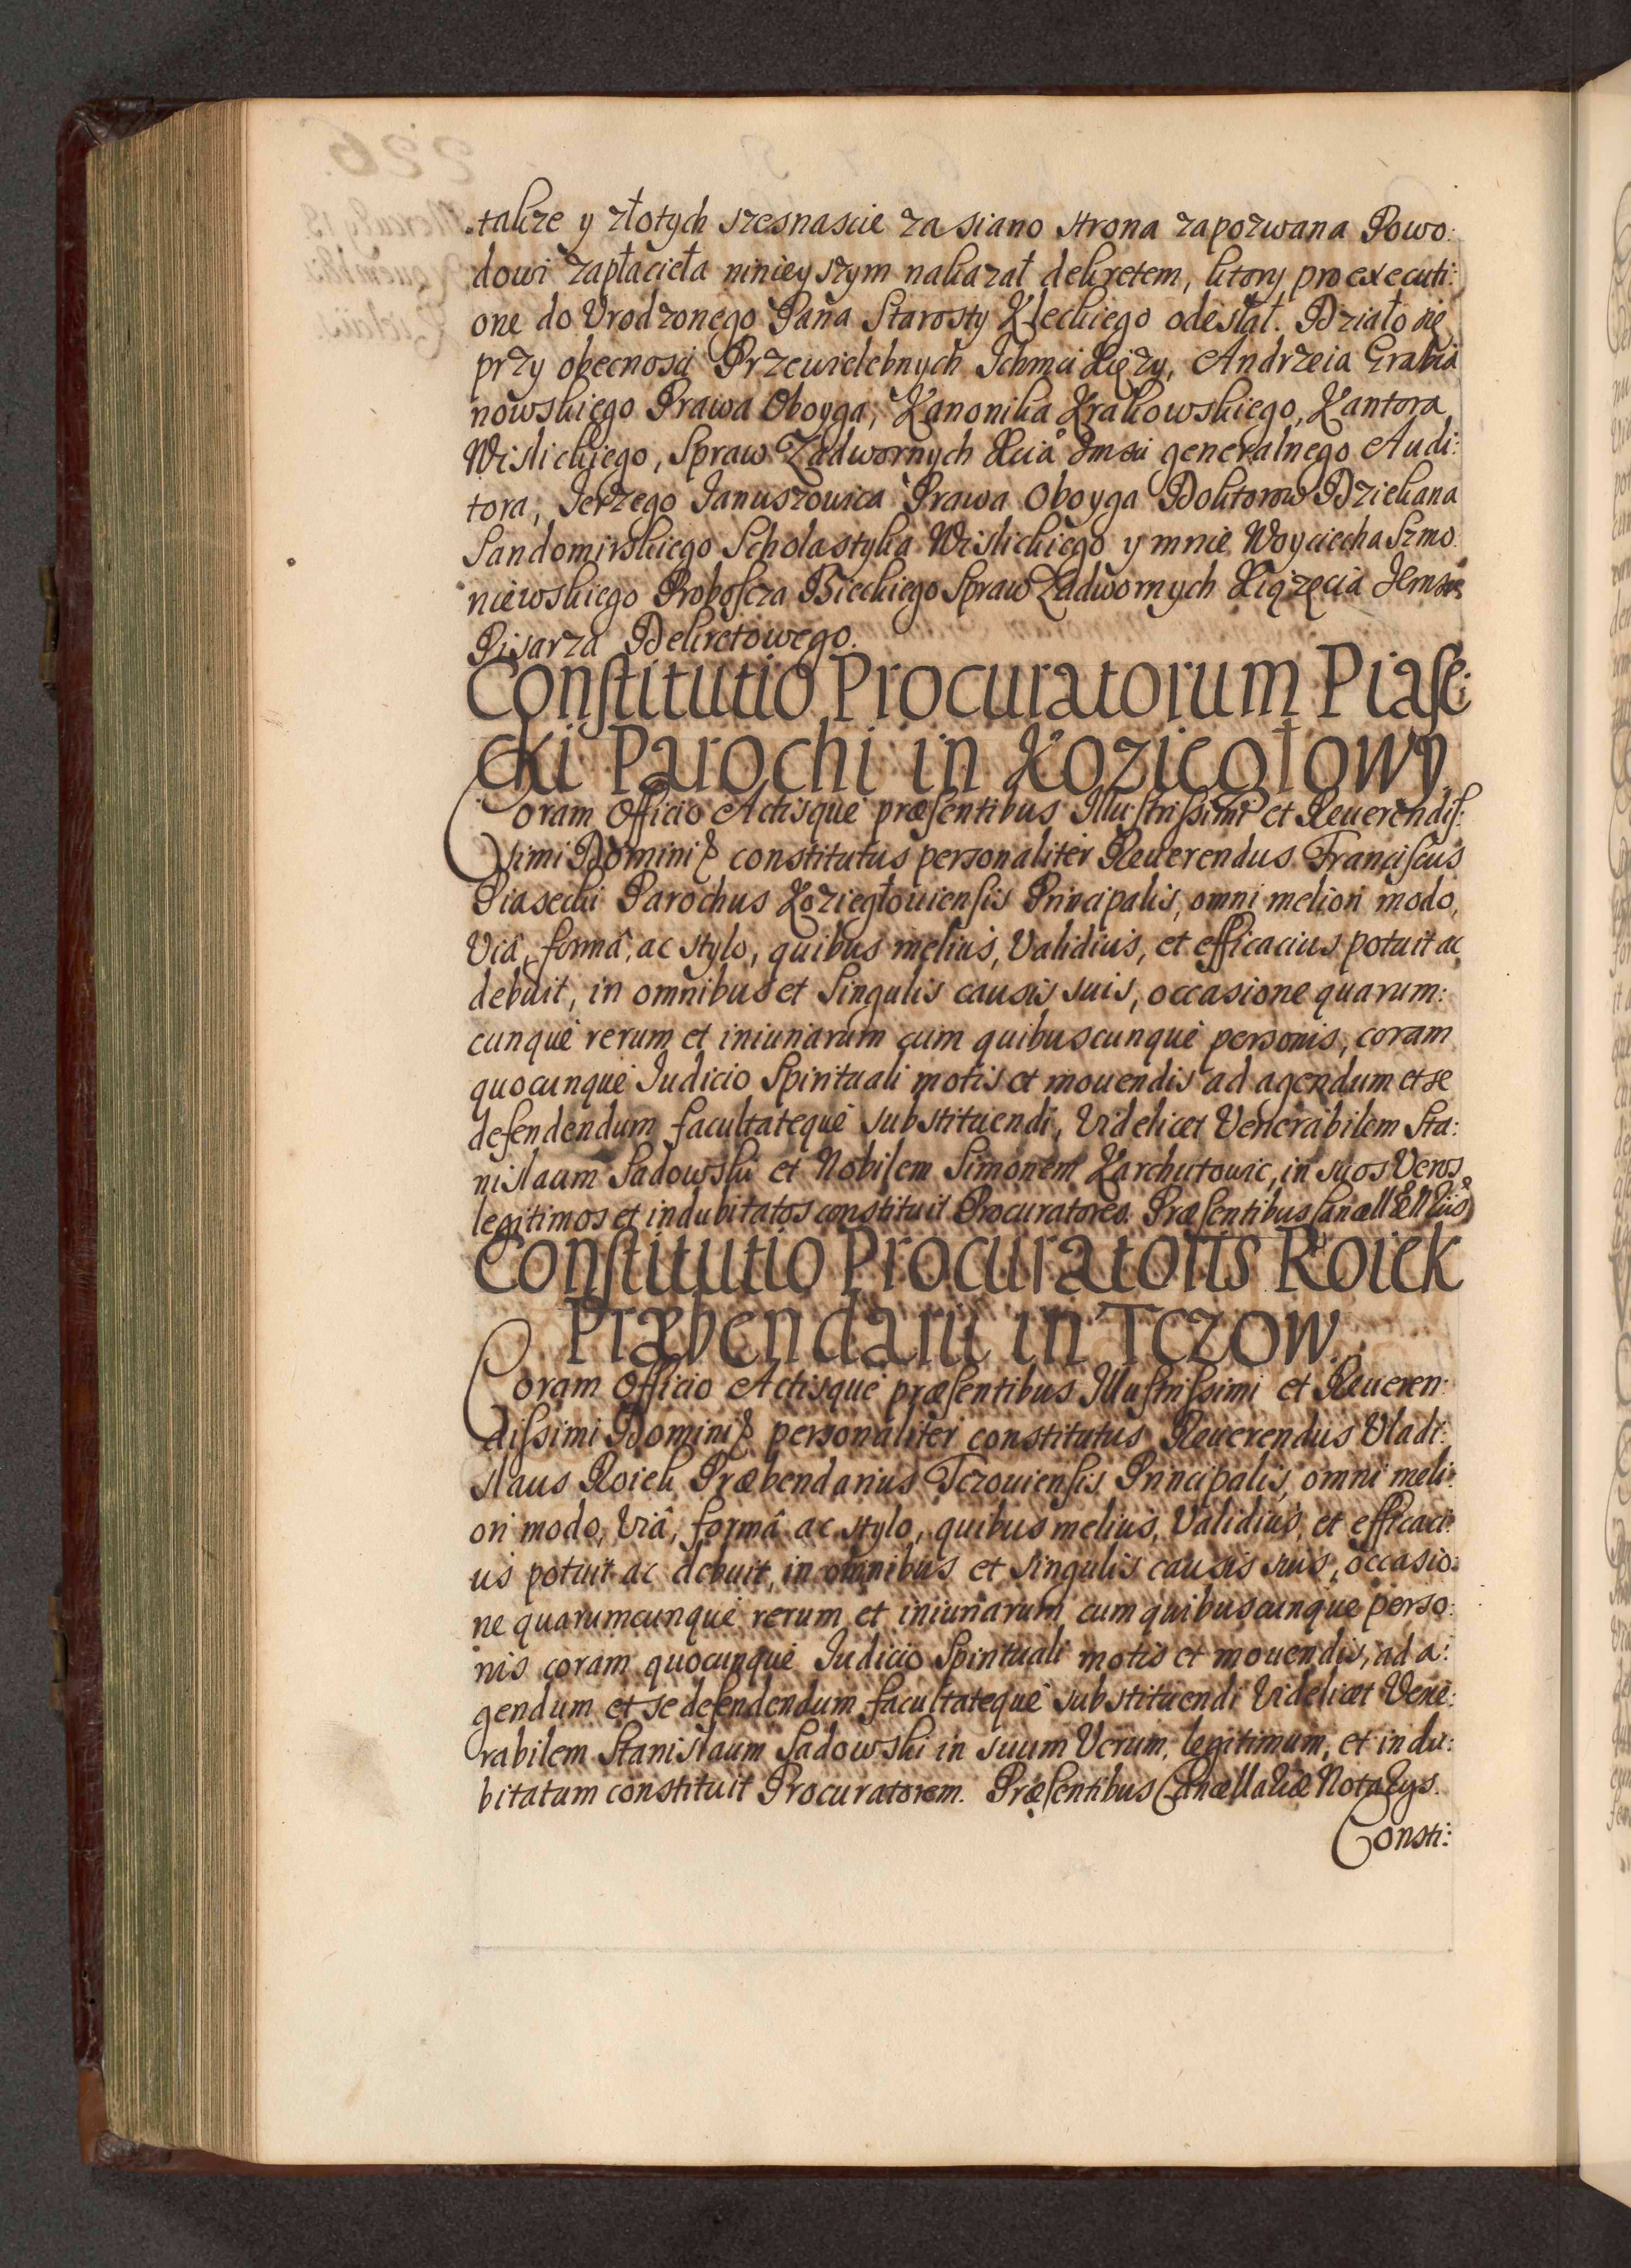 takze y złotych szesnascie za siano strona zapozwana Powo:
dowi zapłacieła ninieyszym nakazał dekretem, ktory pro executi:
one do Vrodzonego Pana Starosty Kleckiego odesłał. Działo się
przy obecnosci Przewielebnych Ichmci Xięzy, Andrzeia Grabia
nowskiego Prawa Oboyga, Kanonika Krakowskiego, Kantora
Wislickiego, Spraw Zadwornych Xcia Imsci generalnego Audi:
tora, Jerzego Januszowica Prawa Oboyga Doktorow Dziekana
Sandomirskiego Scholastyka Wislickiego y mnie Woyciecha Szmo
niewskiego Proboscza Bieckiego Spraw Zadwornych Xiązęcia
Pisarza Dekretowego.
Constitutio Procuratorum Piase:
cki Parochi in Koziegłowy.
Coram Officio Actisque præsentibus Illustrissimi et Reuerendis:
simi Domini & constitutus personaliter Reuerendus Franciscus
Piasecki Parochus Koziegłouiensis Principalis, omni meliori modo,
Viâ, formâ, ac stylo, quibus melius, Validius, et efficacius potuit ac
debuit, in omnibus et Singulis causis suis, occasione quarum:
cunque rerum et iniuriarum cum quibuscunque personis, coram
quocunque Iudicio Spirituali motis et mouendis ad agendum et se
defendendum facultateque substituendi, Videlicet Venerabilem Sta:
nislaum Sadowski et Nobilem Simonem Karchutowic, in suos Veros
legitimos et indubitatos constituit Procuratores. Præsentibus
Constitutio Procuratoris Roiek
Præbendarii in Tczow.
Coram Officio Actisque præsentibus Illustrissimi et Reueren:
dissimi Domini & personaliter constitutus Reuerendus Vladi:
slaus Roiek Præbendarius Tczouiensis Principalis, omni meli:
ori modo, Viâ, formâ ac stylo, quibus melius, Validius, et efficaci:
us potuit ac debuit, in omnibus et singulis causis suis, occasio:
ne quarumcunque rerum et iniuriarum cum quibuscunque perso:
nis coram quocunque Iudicio Spirituali motis et mouendis, ad a:
gendum et se defendendum facultateque substituendi Videlicet Vene:
rabilem Stanislaum Sadowski in suum Verum, legitimum, et indu:
bitatum constituit Procuratorem. Præsentibus Cancellariæ Notarijs.
Consti: